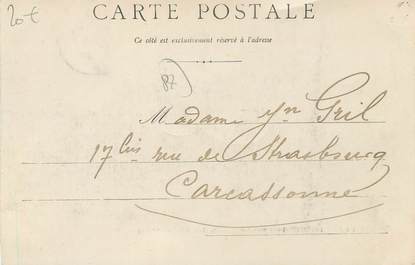 20€
CARTE POSTALE
Ce côté est exclusivement réservé à l'adresse
87
Madame Gril
17 bis rue de Strasbourg
Carcassonne